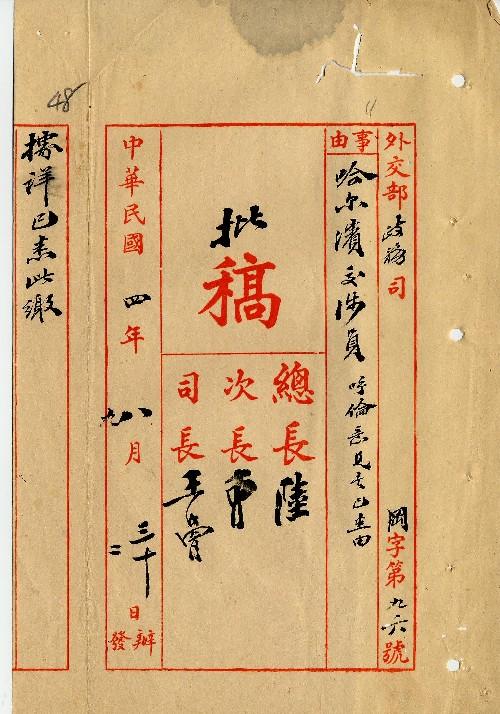 外交部政務司 字第九六號
事由
哈尔濱交涉員呼倫意見已由
批
稿
總長陸
次長
司長王
中華民國四年八九月三十二日辦發
據詳已悉此繳
48